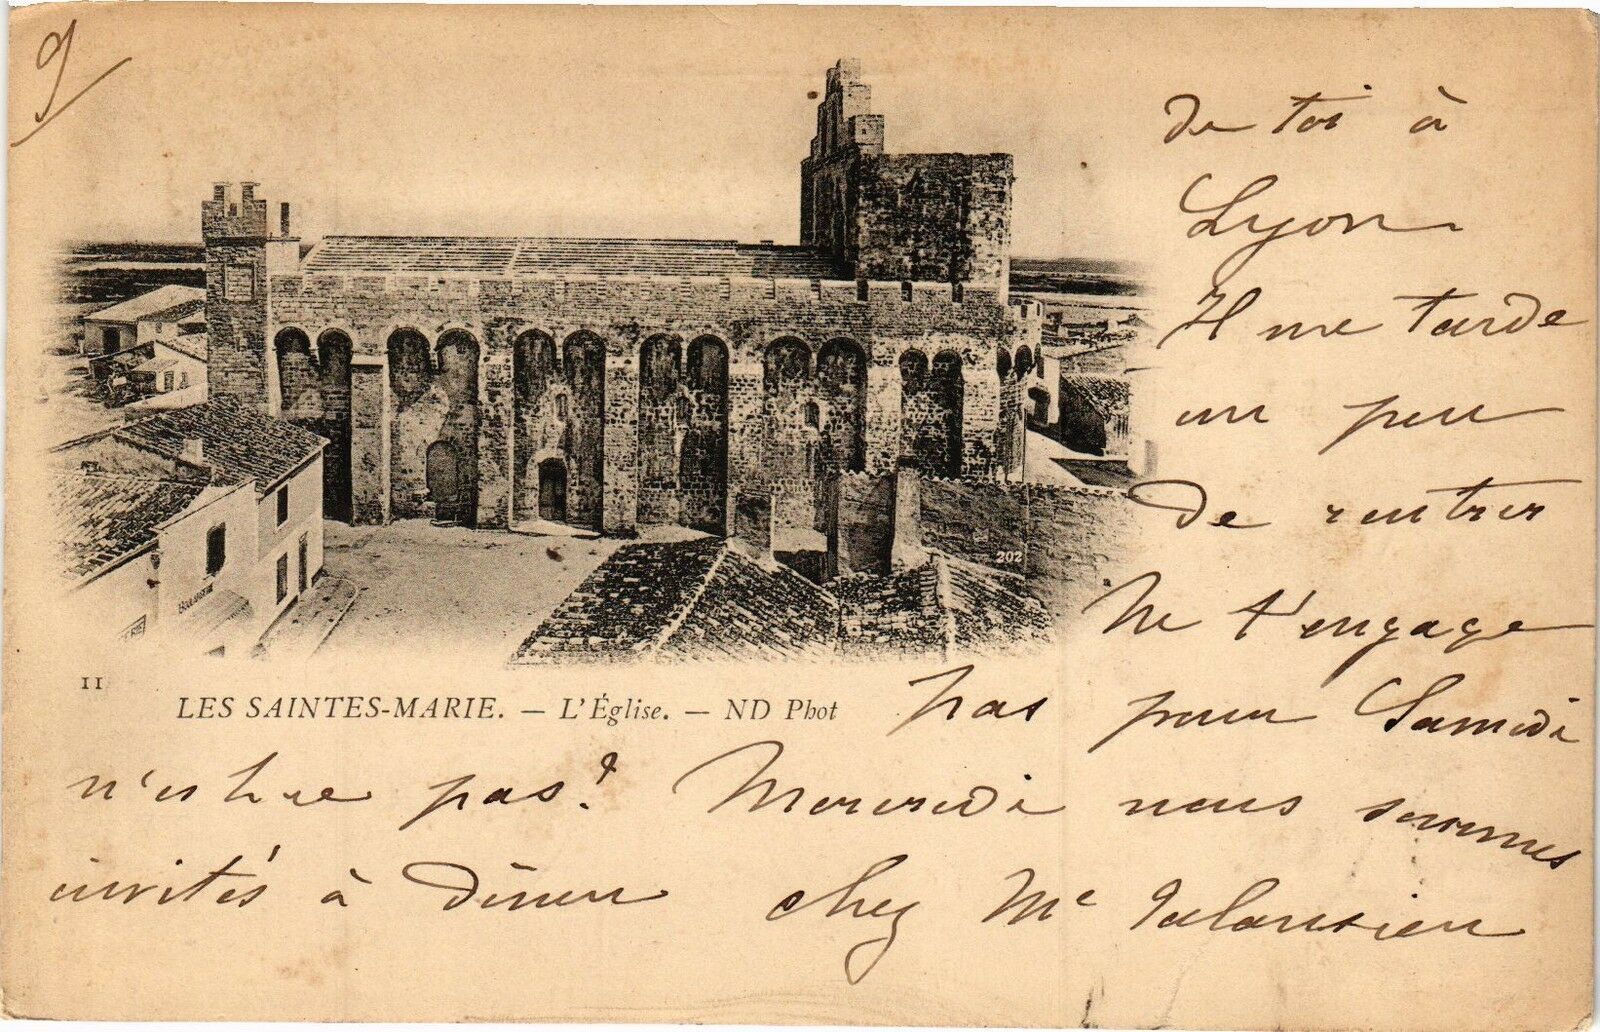 9
de toi à
Lyon
Il me tarde
un peu
de rentrer
Ne t'engage
pas pour Samedi
n'est-ce pas? Mercredi nous sommes
invités à dîner chez Me
11
LES SAINTES-MARIE. — L'Église. — ND Phot
202